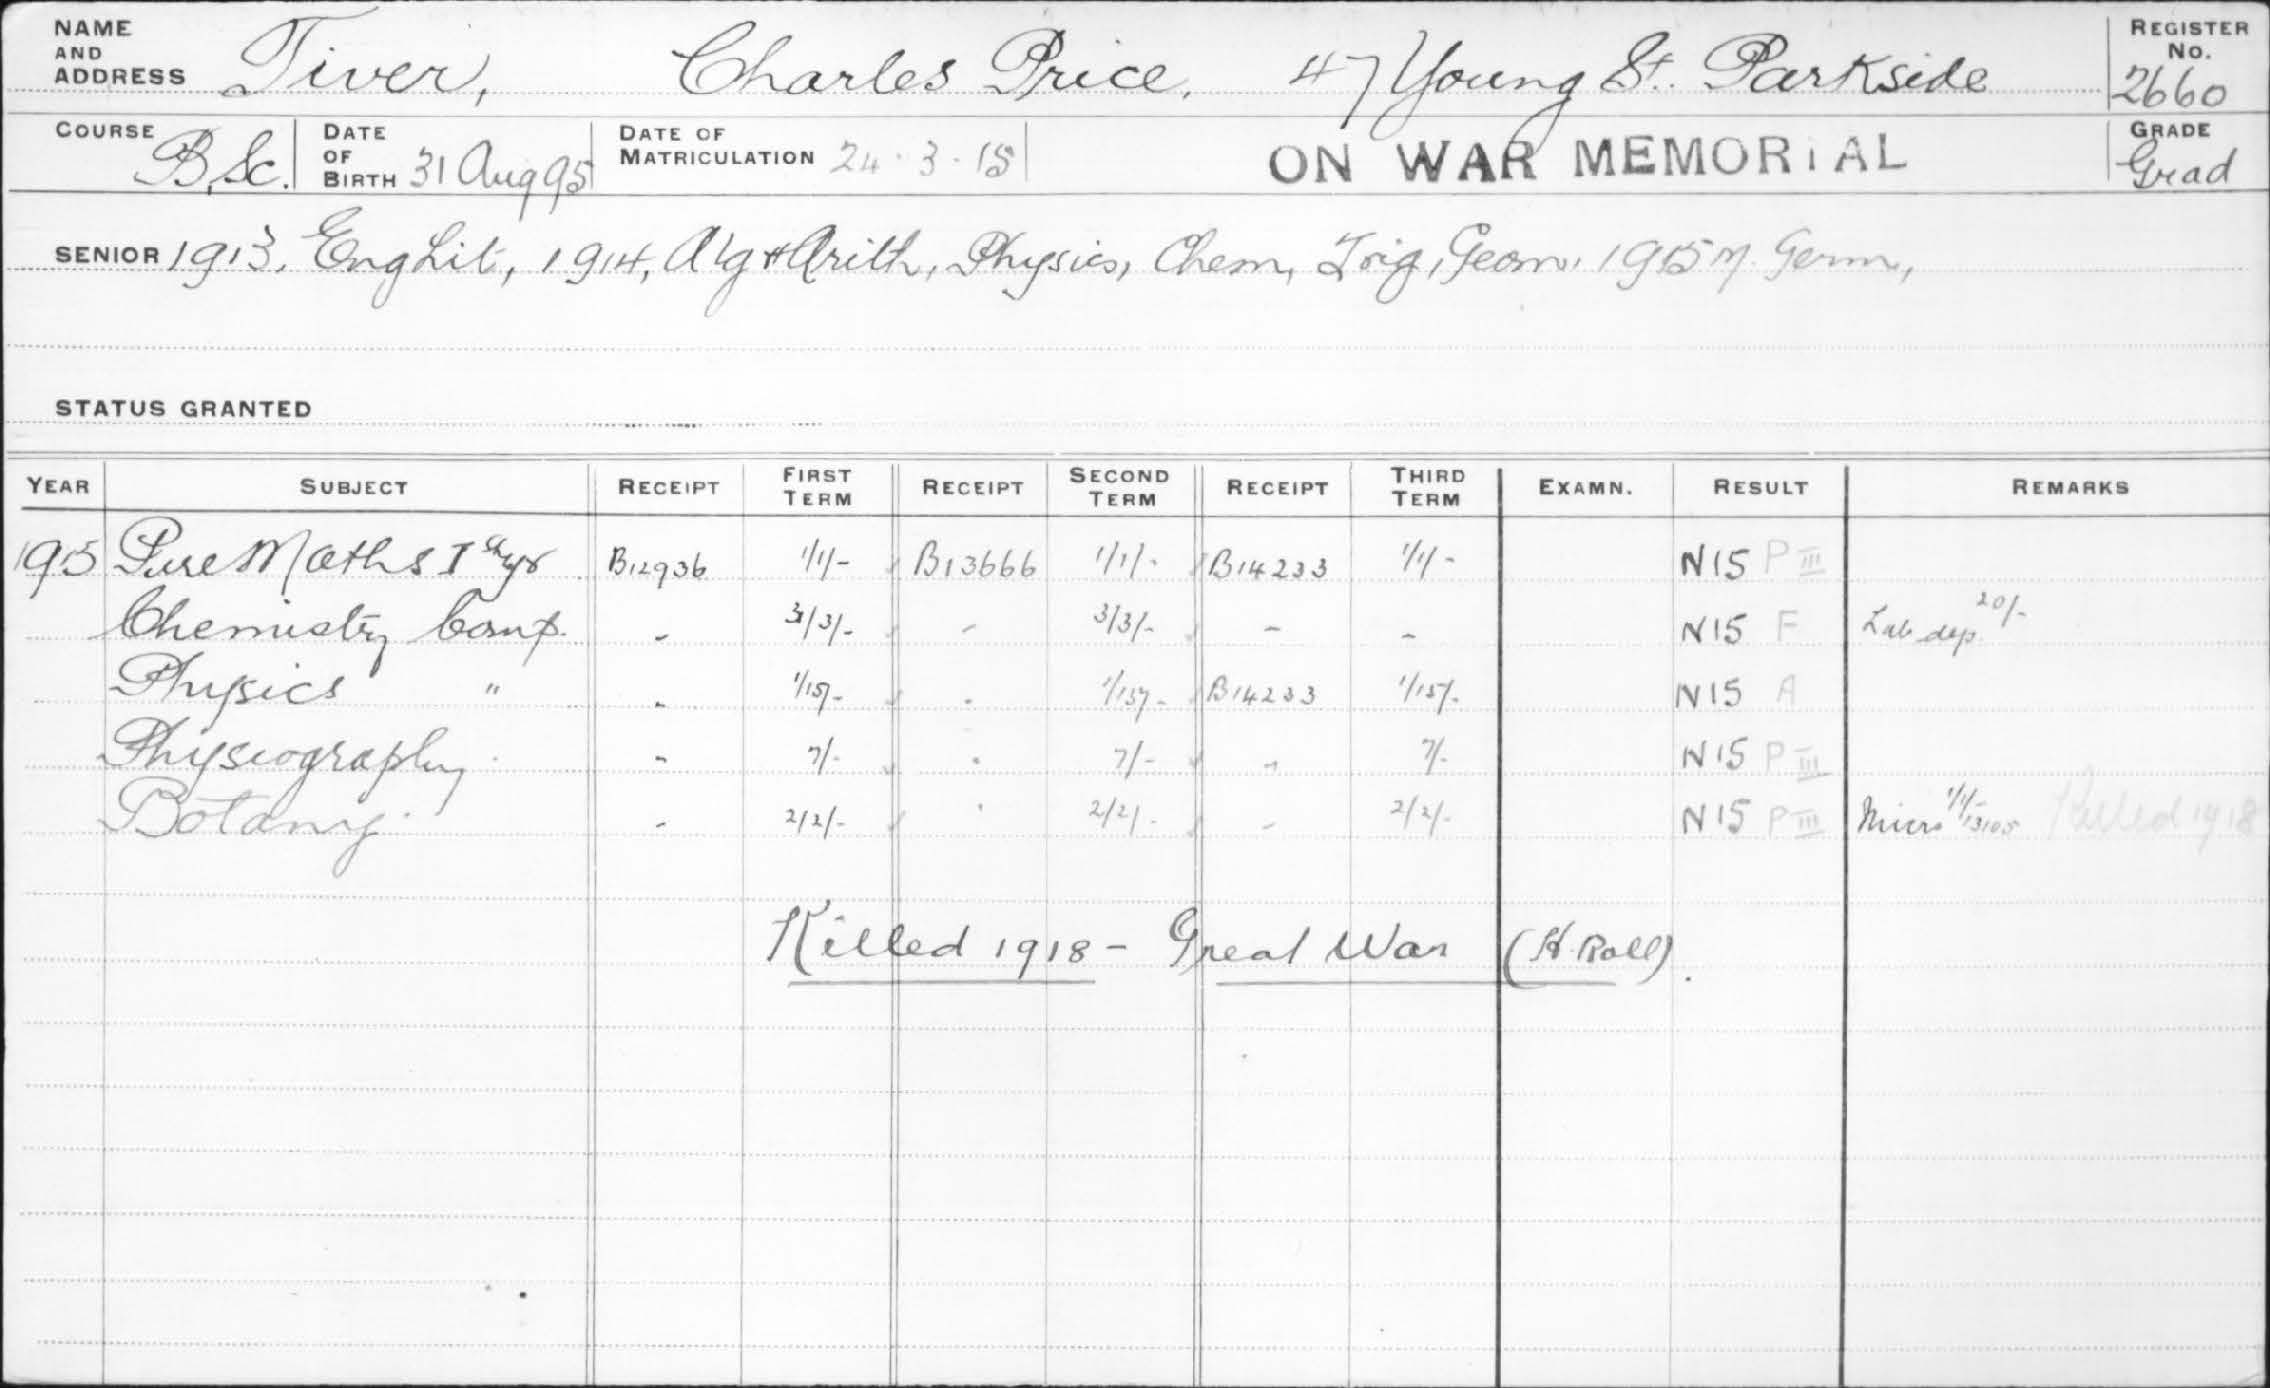 NAME AND ADDRESS Tiver, Charles Price, 47 Young St. Parkside REGISTER No. 2660
COURSE B.Sc. DATE OF BIRTH 31 Aug 95 DATE OF MATRICULATION 24.3.15 ON WAR MEMORIAL GRADE Grad
SENIOR 1913, Eng Lit, 1914, Alg & Arith, Physics, Chem, Trig, Geom, 1915 M. Germ,
STATUS GRANTED
YEAR SUBJECT RECEIPT FIRST TERM RECEIPT SECOND TERM RECEIPT THIRD TERM EXAMN. RESULT REMARKS
1915 Pure Maths I B12936 1/1/- B13666 1/1/- B14233 1/1/- N15 P III
Chemistry Comp. - 3/3/- - 3/3/- - - N15 F Lab dep. 20/-
Physics " - 1/15/- - 1/15/- B14233 1/15/- N15 A
Physiography - 7/- - 7/- - 7/- N15 P III
Botany - 2/2/- - 2/2/- - 2/2/- N15 P III Micro 1/1/- 13105 Killed 1918
Killed 1918 - Great War (H. Roll).